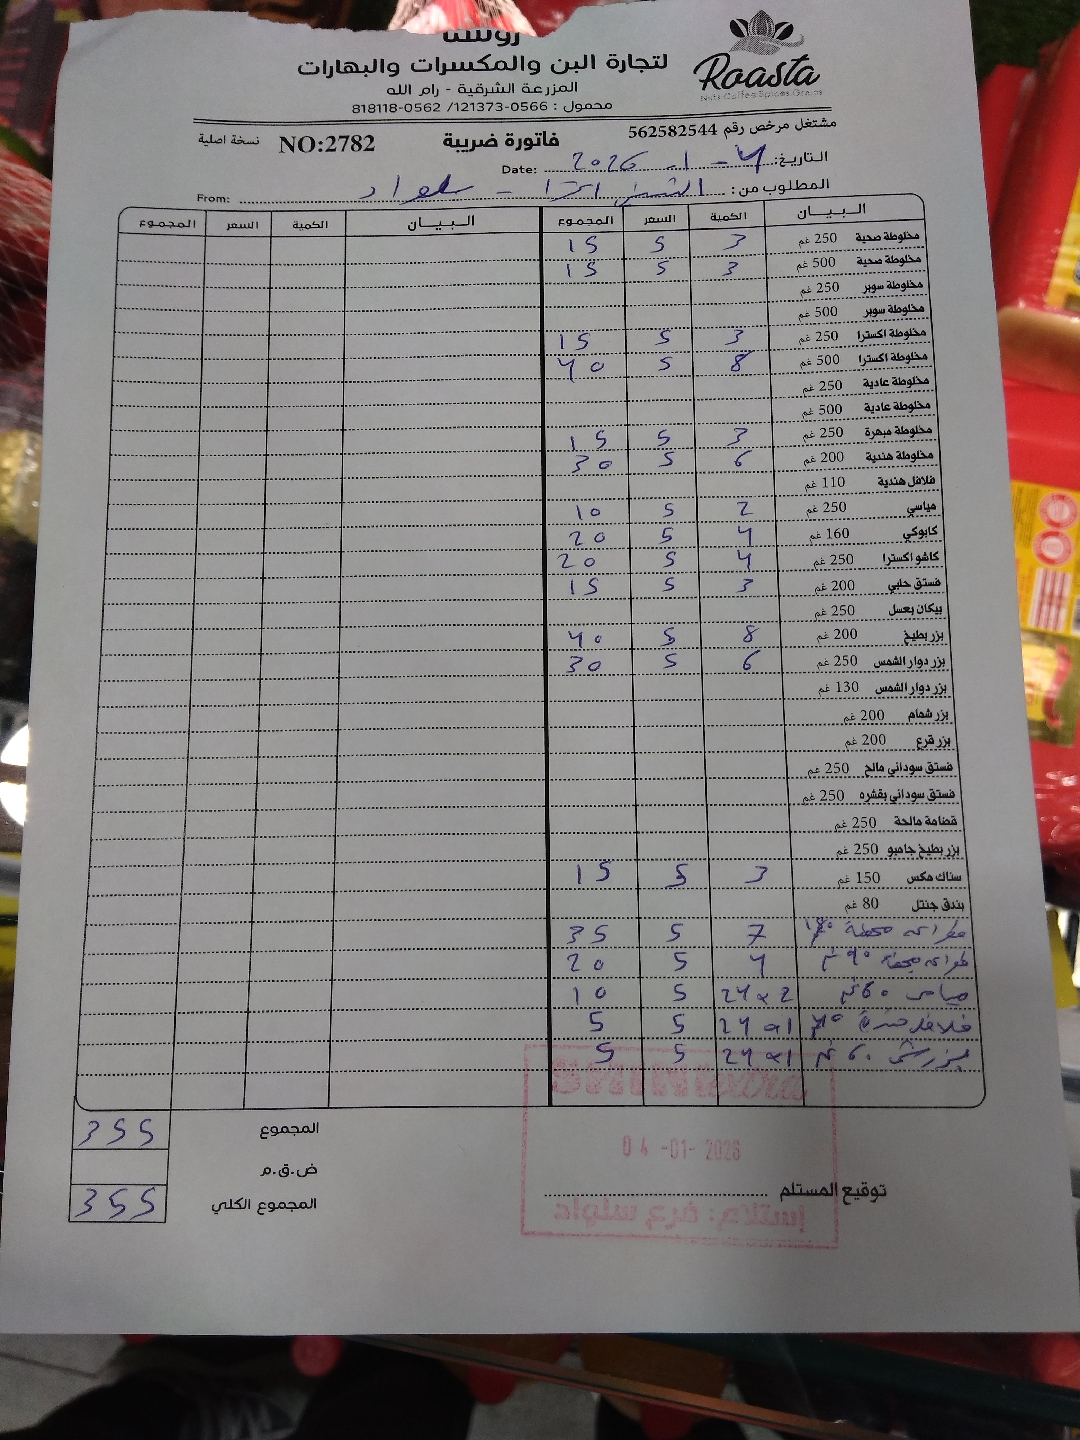 روستا
لتجارة البن والمكسرات والبهارات
المزرعة الشرقية - رام الله
محمول : 0566-121373/ 0562-818118
Roasta
Nuts Coffee Spices Grains
مشتغل مرخص رقم 562582544
فاتورة ضريبة
NO:2782
نسخة اصلية
التاريخ: 4 - 1 - 2026 Date:
المطلوب من: الشني اكسترا - سلواد From:
البيان الكمية السعر المجموع البيان الكمية السعر المجموع
مخلوطة صحية 250 غم 3 5 15
مخلوطة صحية 500 غم 3 5 15
مخلوطة سوبر 250 غم
مخلوطة سوبر 500 غم
مخلوطة اكسترا 250 غم 3 5 15
مخلوطة اكسترا 500 غم 8 5 40
مخلوطة عادية 250 غم
مخلوطة عادية 500 غم
مخلوطة مبهرة 250 غم 3 5 15
مخلوطة هندية 200 غم 6 5 30
فلافل هندية 110 غم
مياسي 250 غم 2 5 10
كابوكي 160 غم 4 5 20
كاشو اكسترا 250 غم 4 5 20
فستق حلبي 200 غم 3 5 15
بيكان بعسل 250 غم
بزر بطيخ 200 غم 8 5 40
بزر دوار الشمس 250 غم 6 5 30
بزر دوار الشمس 130 غم
بزر شمام 200 غم
بزر قرع 200 غم
فستق سوداني مالح 250 غم
فستق سوداني بقشره 250 غم
قضامة مالحة 250 غم
بزر بطيخ جامبو 250 غم
سناك مكس 150 غم 3 5 15
بندق جنتل 80 غم
7 5 35
٩٠ غم 4 5 20
مياسي ٦٠ غم 2 × 24 5 10
فلافل هندية 1 × 24 5 5
٦٠ غم 1 × 24 5 5
المجموع 355
ض.ق.م
المجموع الكلي 355
توقيع المستلم
04 -01- 2026
إستلام: فرع سلواد